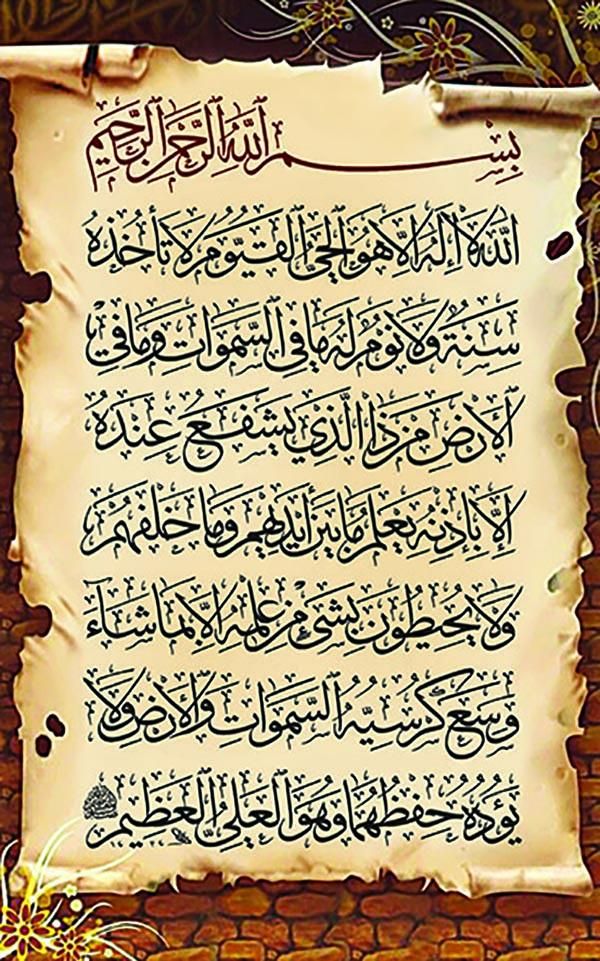 بِسْمِ اللَّهِ الرَّحْمَنِ الرَّحِيمِ
اللَّهُ لَا إِلَهَ إِلَّا هُوَ الْحَيُّ الْقَيُّومُ لَا تَأْخُذُهُ
سِنَةٌ وَلَا نَوْمٌ لَهُ مَا فِي السَّمَوَاتِ وَمَا فِي
الْأَرْضِ مَنْ ذَا الَّذِي يَشْفَعُ عِنْدَهُ
إِلَّا بِإِذْنِهِ يَعْلَمُ مَا بَيْنَ أَيْدِيهِمْ وَمَا خَلْفَهُمْ
وَلَا يُحِيطُونَ بِشَيْءٍ مِنْ عِلْمِهِ إِلَّا بِمَا شَاءَ
وَسِعَ كُرْسِيُّهُ السَّمَوَاتِ وَالْأَرْضَ وَلَا
يَؤُدُهُ حِفْظُهُمَا وَهُوَ الْعَلِيُّ الْعَظِيمُ